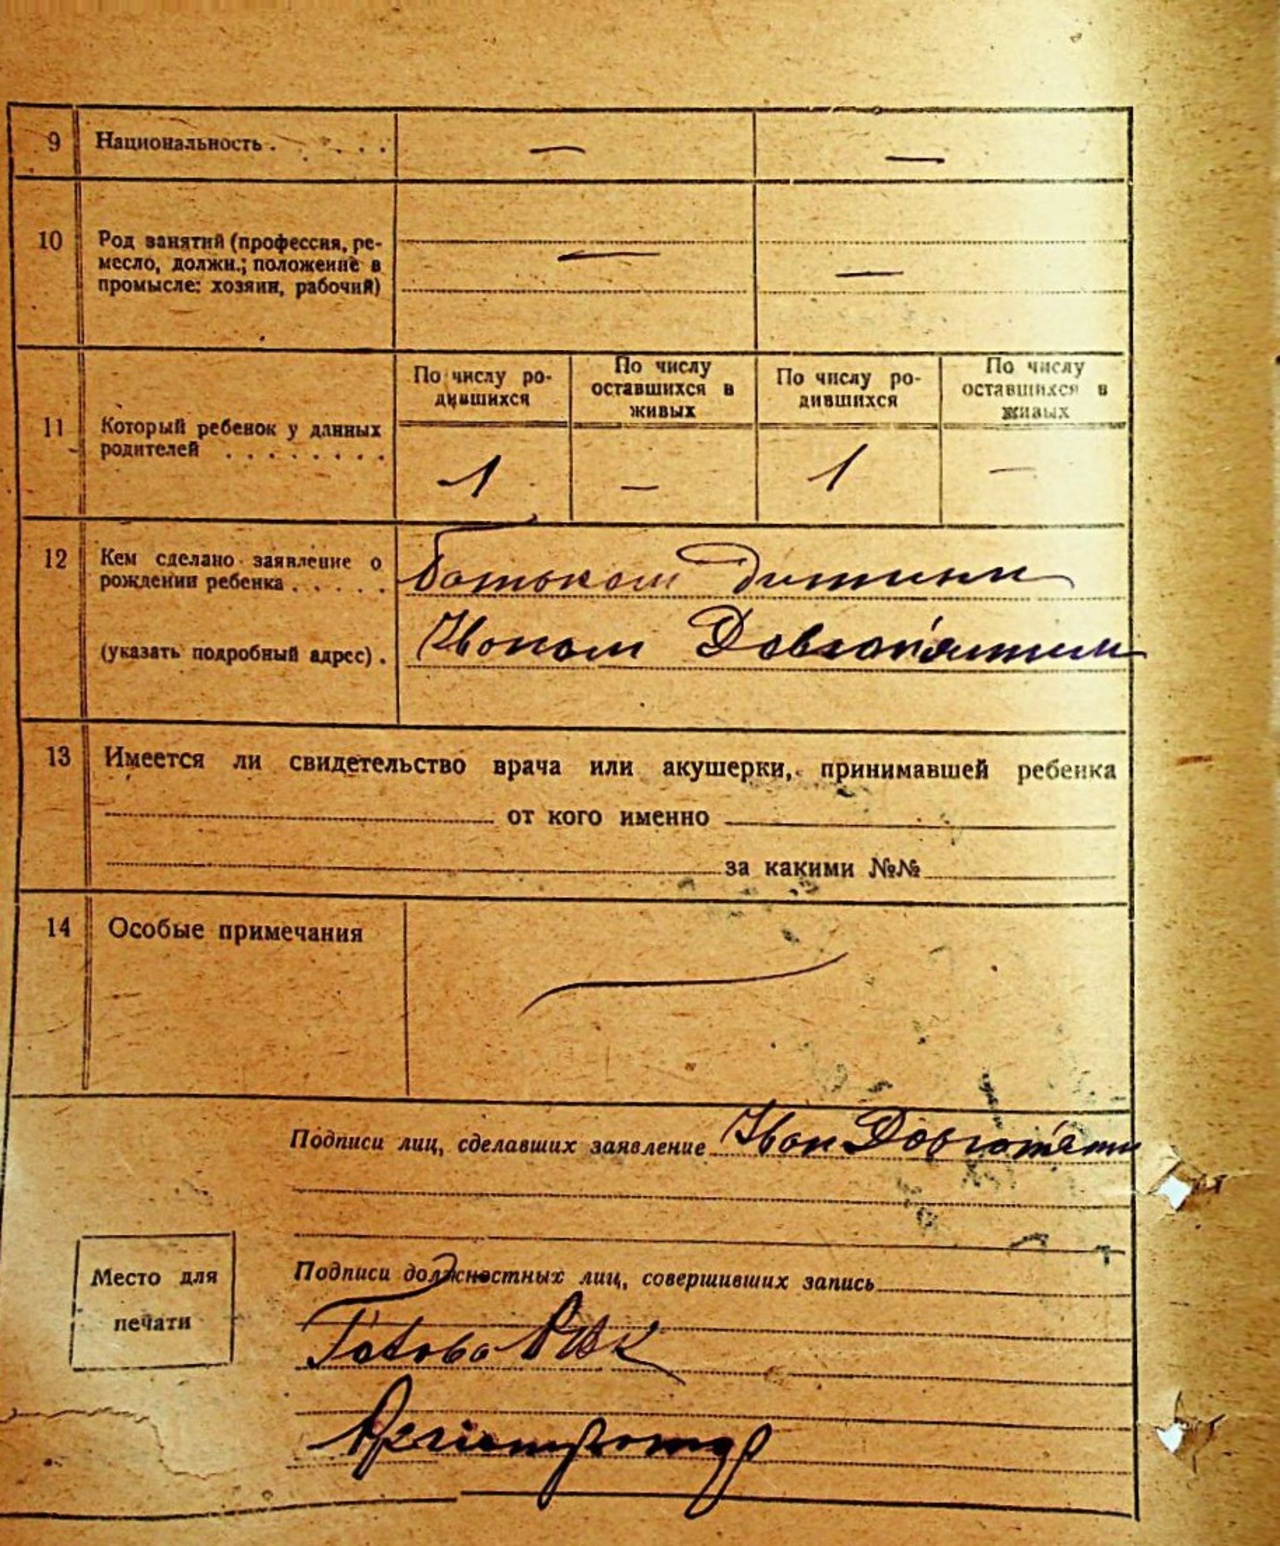 9 Национальность . . . . . . — —
10 Род занятий (профессия, ре-
месло, должн.; положение в
промысле: хозяин, рабочий) — —
По числу ро- По числу По числу ро- По числу
дившихся оставшихся в дившихся оставшихся в
живых живых
11 Который ребенок у данных
родителей . . . . . . . . 1 — 1 —
12 Кем сделано заявление о
рождении ребенка . . . . . Батьком дитини
(указать подробный адрес) . Иваном Довгоп'ятим
13 Имеется ли свидетельство врача или акушерки, принимавшей ребенка
от кого именно
за какими №№
14 Особые примечания
Подписи лиц, сделавших заявление Иван Довгоп'яти
Подписи должностных лиц, совершивших запись
Место для
печати
Голова